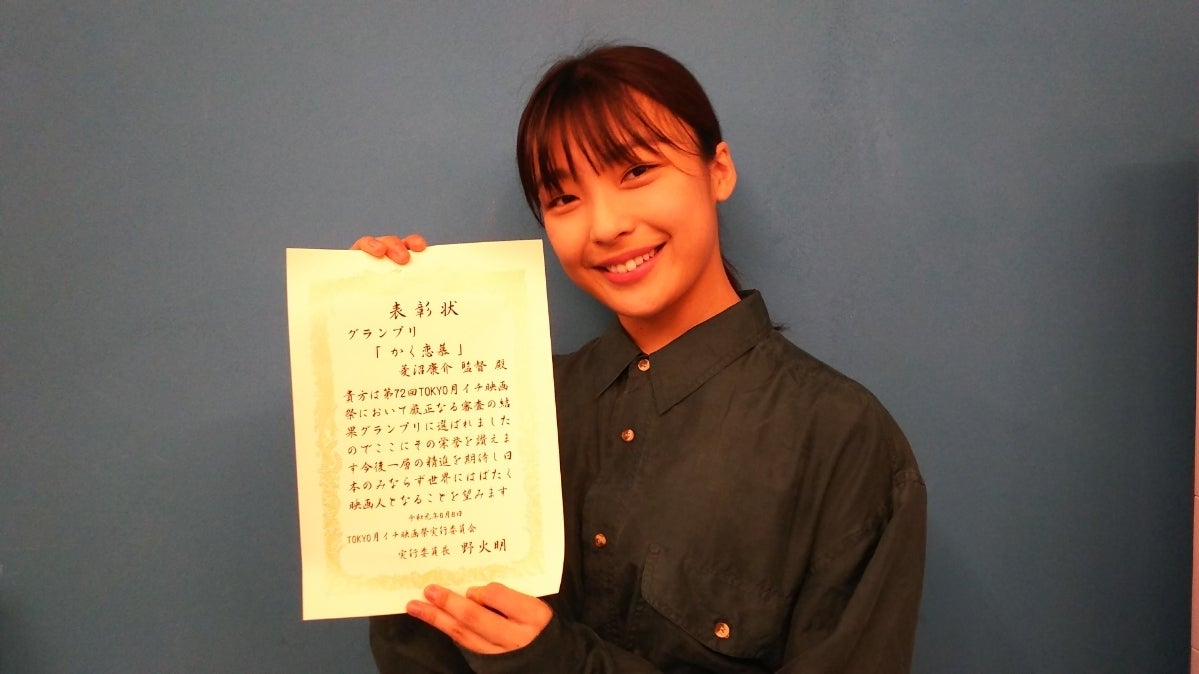 表彰状
グランプリ
「かく恋慕」
菱沼康介 監督 殿
貴方は第72回TOKYO月イチ映画
祭において厳正なる審査の結
果グランプリに選ばれました
のでここにその栄誉を讃えま
す今後一層の精進を期待し日
本のみならず世界にはばたく
映画人となることを望みます
令和元年6月8日
TOKYO月イチ映画祭実行委員会
実行委員長 野火明